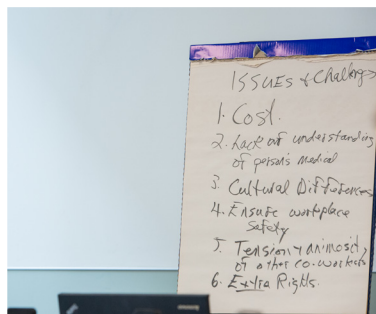 ISSUES + Challenges
1. Cost.
2. Lack of understanding
of person's medical
3. Cultural Differences
4. Ensure workplace
Safety
5. Tension + animosity
of other co-workers
6. Extra Rights.